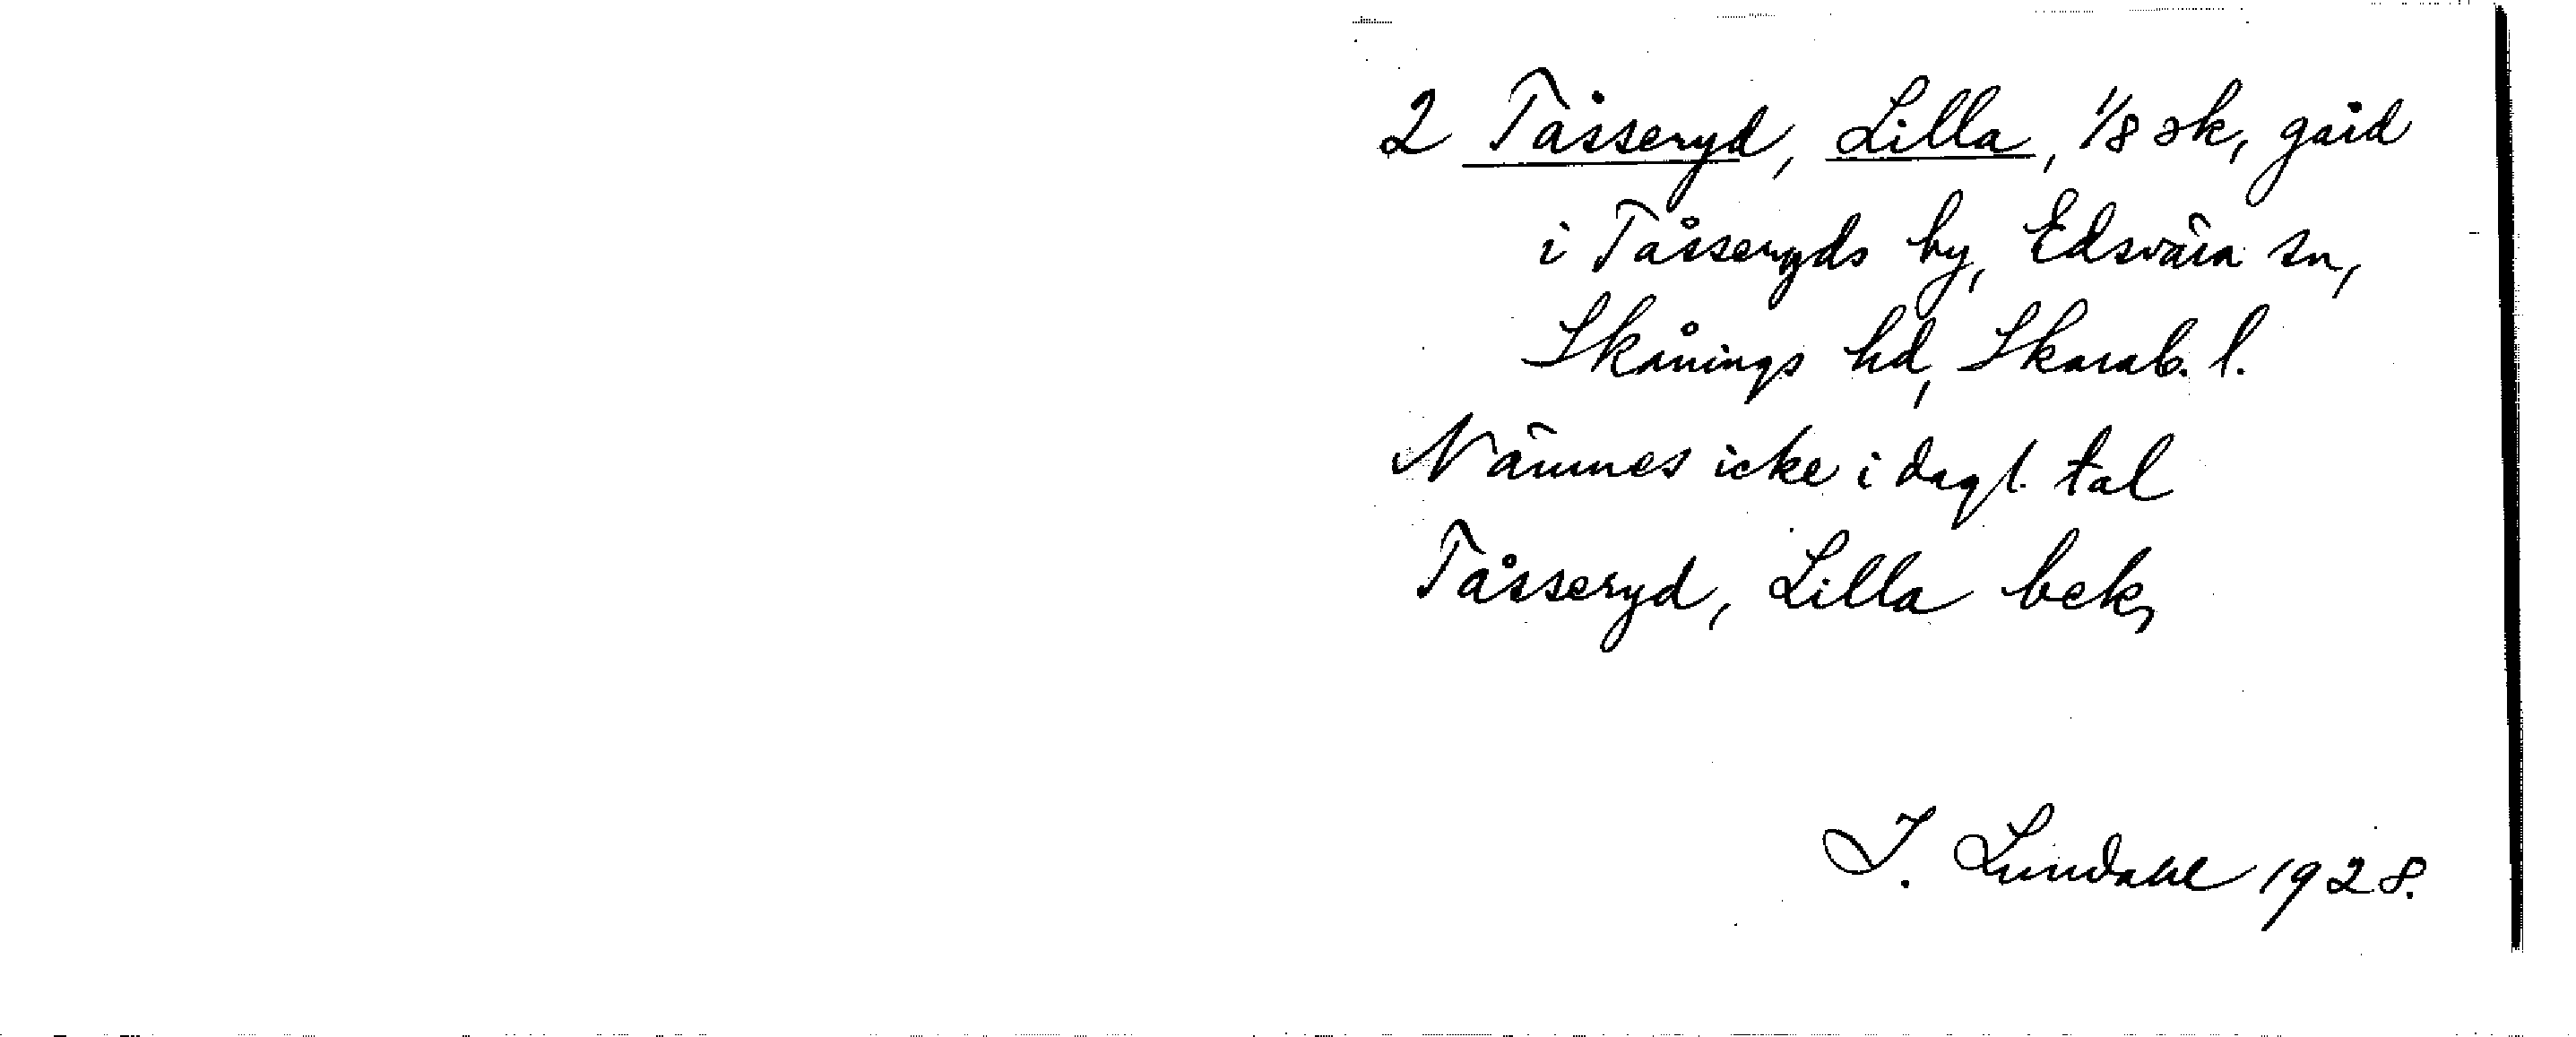 2 Tåsseryd, Lilla, 1/8 sk, gård
i Tåsseryds by, Edsvära sn,
Skånings hd, Skarab. l.
Nämnes icke i dagl. tal
Tåsseryd, Lilla bek,
I. Lundahl 1928.